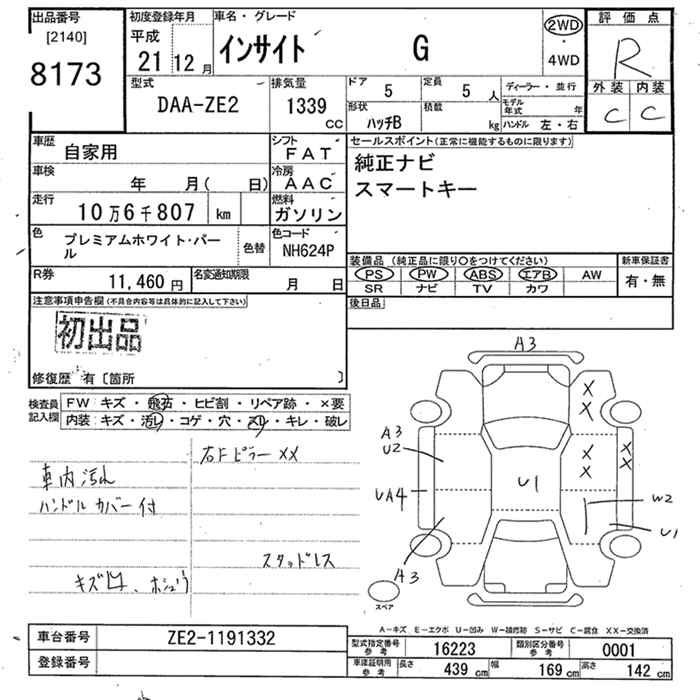 出品番号 初度登録年月 車名・グレード 評価点
[2140] 平成 インサイト G 2WD R
8173 21 12月 ・4WD 外装 内装
型式 排気量 ドア 5 定員 5人 ディーラー・並行 C C
DAA-ZE2 1339cc 形状 ハッチB 積載 kg モデル年式 年 ハンドル 左・右
車歴 自家用 シフト FAT セールスポイント(正常に機能するものに限ります)
車検 年 月( 日) 冷房 AAC 純正ナビ
走行 10万6千807 km 燃料 ガソリン スマートキー
色 プレミアムホワイト・パール 色替 色コード NH624P
装備品 (純正品に限り○をつけてください) 新車保証書
PS PW ABS エアB AW 有・無
SR ナビ TV カワ
R券 11,460円 名変通知期限 月 日 後日品
注意事項申告欄(不具合内容等は具体的に記入して下さい)
初出品
修復歴 有〔箇所 〕
検査員記入欄 FW:キズ・飛石・ヒビ割・リペア跡・×要
内装:キズ・汚れ・コゲ・穴・スレ・キレ・破レ
右Fピラー XX
車内汚れ
ハンドル カバー 付
スタッドレス
A3
X
X
A3
U2
X
X
X
X
U1
UA4
W2
U1
A3
スペア
A3
A-キズ E-エクボ U-凹み W-補修跡 S-サビ C-腐食 XX-交換済
車台番号 ZE2-1191332 型式指定番号参考 16223 類別区分番号参考 0001
登録番号 車庫証明用参考 長さ 439cm 幅 169cm 高さ 142cm